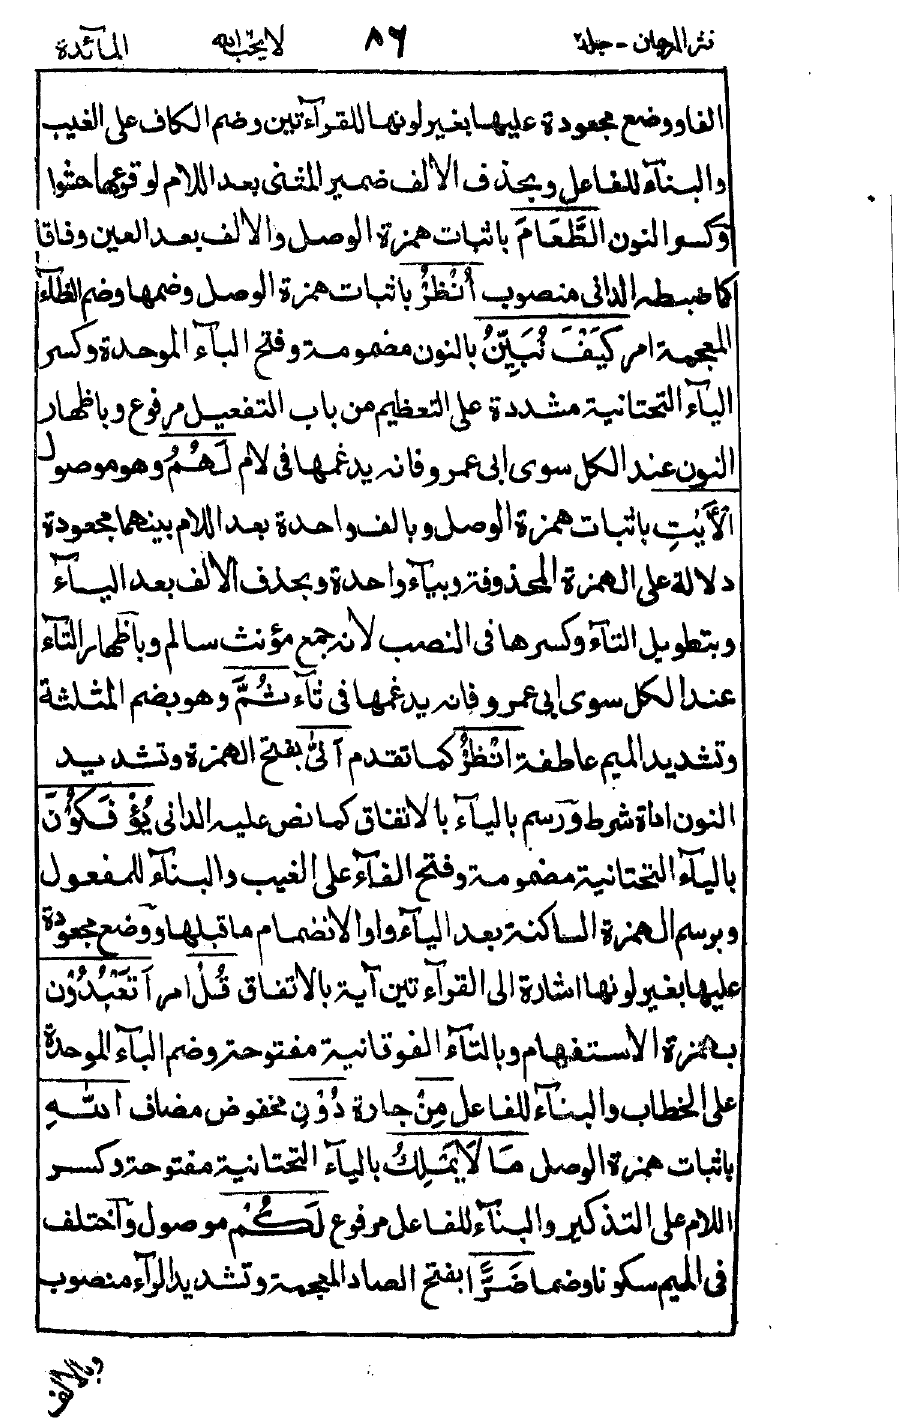 نثر المرجان - جلد٢ ٨٦ لا يحب الله المآئدة
الفا ووضع مجعودة عليها بغير لونها للقرآءتين وضم الكاف على الغيب
والبنآء للفاعل وبحذف الألف ضمير المثنى بعد اللام لوقوعها حشوا
وكسر النون الطَّعَامَ باثبات همزة الوصل والالف بعد العين وفاقا
كما ضبطه الدانى منصوب اُنْظُرْ باثبات همزة الوصل وضمها وضم الظآء
المعجمة امر كَيْفَ نُبَيِّنُ بالنون مضمومة وفتح البآء الموحدة وكسر
اليآء التحتانية مشددة على التعظيم من باب التفعيل مرفوع وباظهار
النون عند الكل سوى ابى عمرو فانه يدغمها فى لام لَهُمُ وهو موصول
الْاٰيٰتِ باثبات همزة الوصل وبالف واحدة بعد اللام بينهما مجعودة
دلالة على الهمزة المحذوفة وبيآء واحدة وبحذف الالف بعد اليــآء
وبتطويل التآء وكسرها فى النصب لانه جمع مؤنث سالم وباظهار التآء
عند الكل سوى ابى عمرو فانه يدغمها فى ثآء ثُمَّ وهو بضم المثلثة
وتشديد الميم عاطفة انْظُرْ كما تقدم اَنّٰى بفتح الهمزة وتشديد
النون اداة شرط ورسم باليآء بالاتفاق كما نص عليه الدانى يُؤْفَكُوْنَ
باليآء التحتانية مضمومة وفتح الفآء على الغيب والبنآء للمفعول
وبرسم الهمزة الساكنة بعد اليآء واوا لانضمام ما قبلها ووضع مجعودة
عليها بغير لونها اشارة الى القرآءتين آية بالاتفاق قُلْ امر اَتَعْبُدُوْنَ
بهمزة الاستفهام وبالتآء الفوقانية مفتوحة وضم البآء الموحدة
على الخطاب والبنآء للفاعل مِنْ جارة دُوْنِ مخفوض مضاف اللّٰهِ
باثبات همزة الوصل مَا لَا يَمْلِكُ باليآء التحتانية مفتوحة وكسر
اللام على التذكير والبنآء للفاعل مرفوع لَكُمْ موصول واختلف
فى الميم سكونا وضما ضَرًّا بفتح الضاد المعجمة وتشديد الرآء منصوب
وبالالف